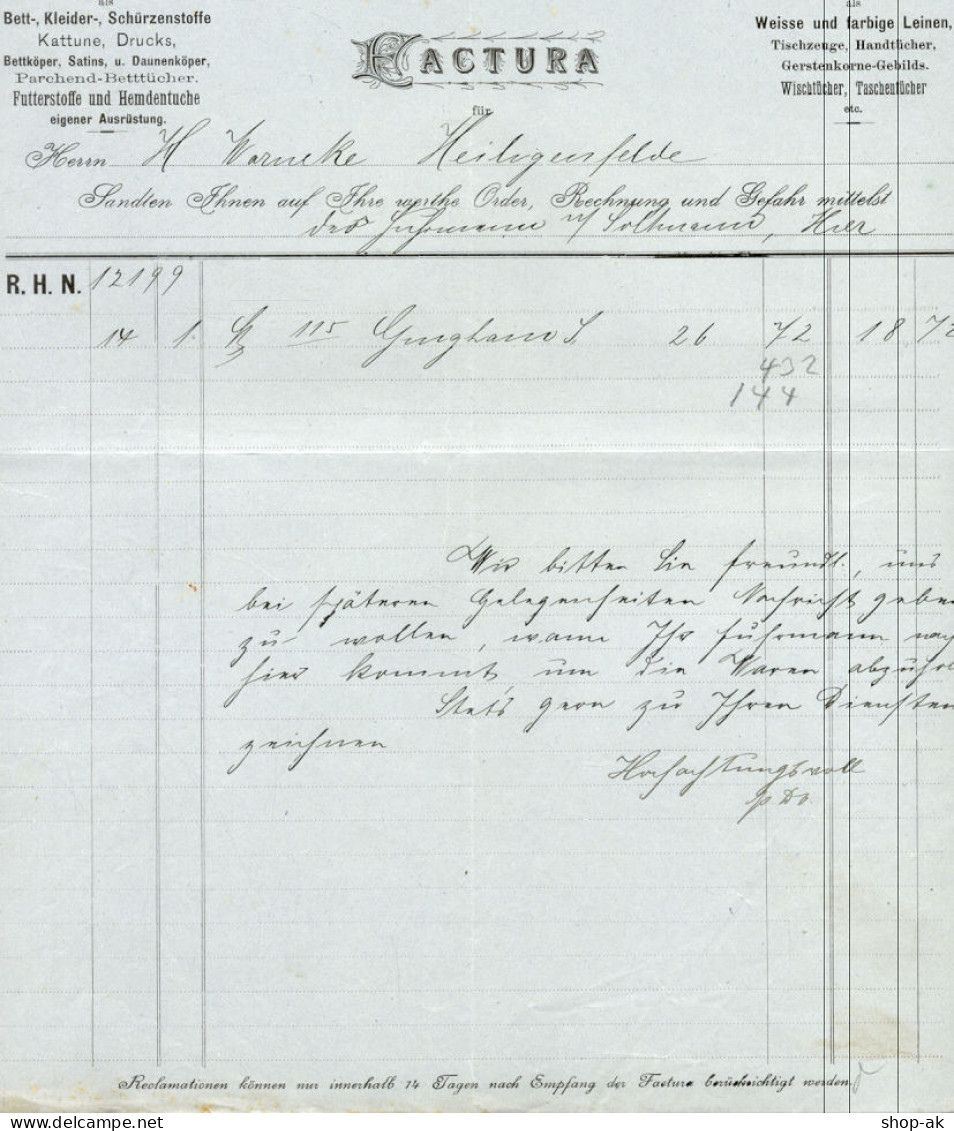 als
Bett-, Kleider-, Schürzenstoffe
Kattune, Drucks,
Bettköper, Satins, u. Daunenköper,
Parchend-Betttücher.
Futterstoffe und Hemdentuche
eigener Ausrüstung.
FACTURA
für
als
Weisse und farbige Leinen,
Tischzeuge, Handtücher,
Gerstenkorne-Gebilds.
Wischtücher, Taschentücher
etc.
Herrn H Warneke Heiligenfelde
Sandten Ihnen auf Ihre werthe Order, Rechnung und Gefahr mittelst
des Fuhrmann Soltmann, Hier
R. H. N. 12199
14 1. 115 Gingham S. 26 72 18 72
432
144
Wir bitten Sie freundl., uns
bei späteren Gelegenheiten Nachricht geben
zu wollen, wann Ihr Fuhrmann nach
hier kommt um die Waren abzuhol
Stets gern zu Ihren Diensten
zeichnen
Hochachtungsvoll
p. Do.
Reclamationen können nur innerhalb 14 Tagen nach Empfang der Factura berücksichtigt werden.
shop-ak